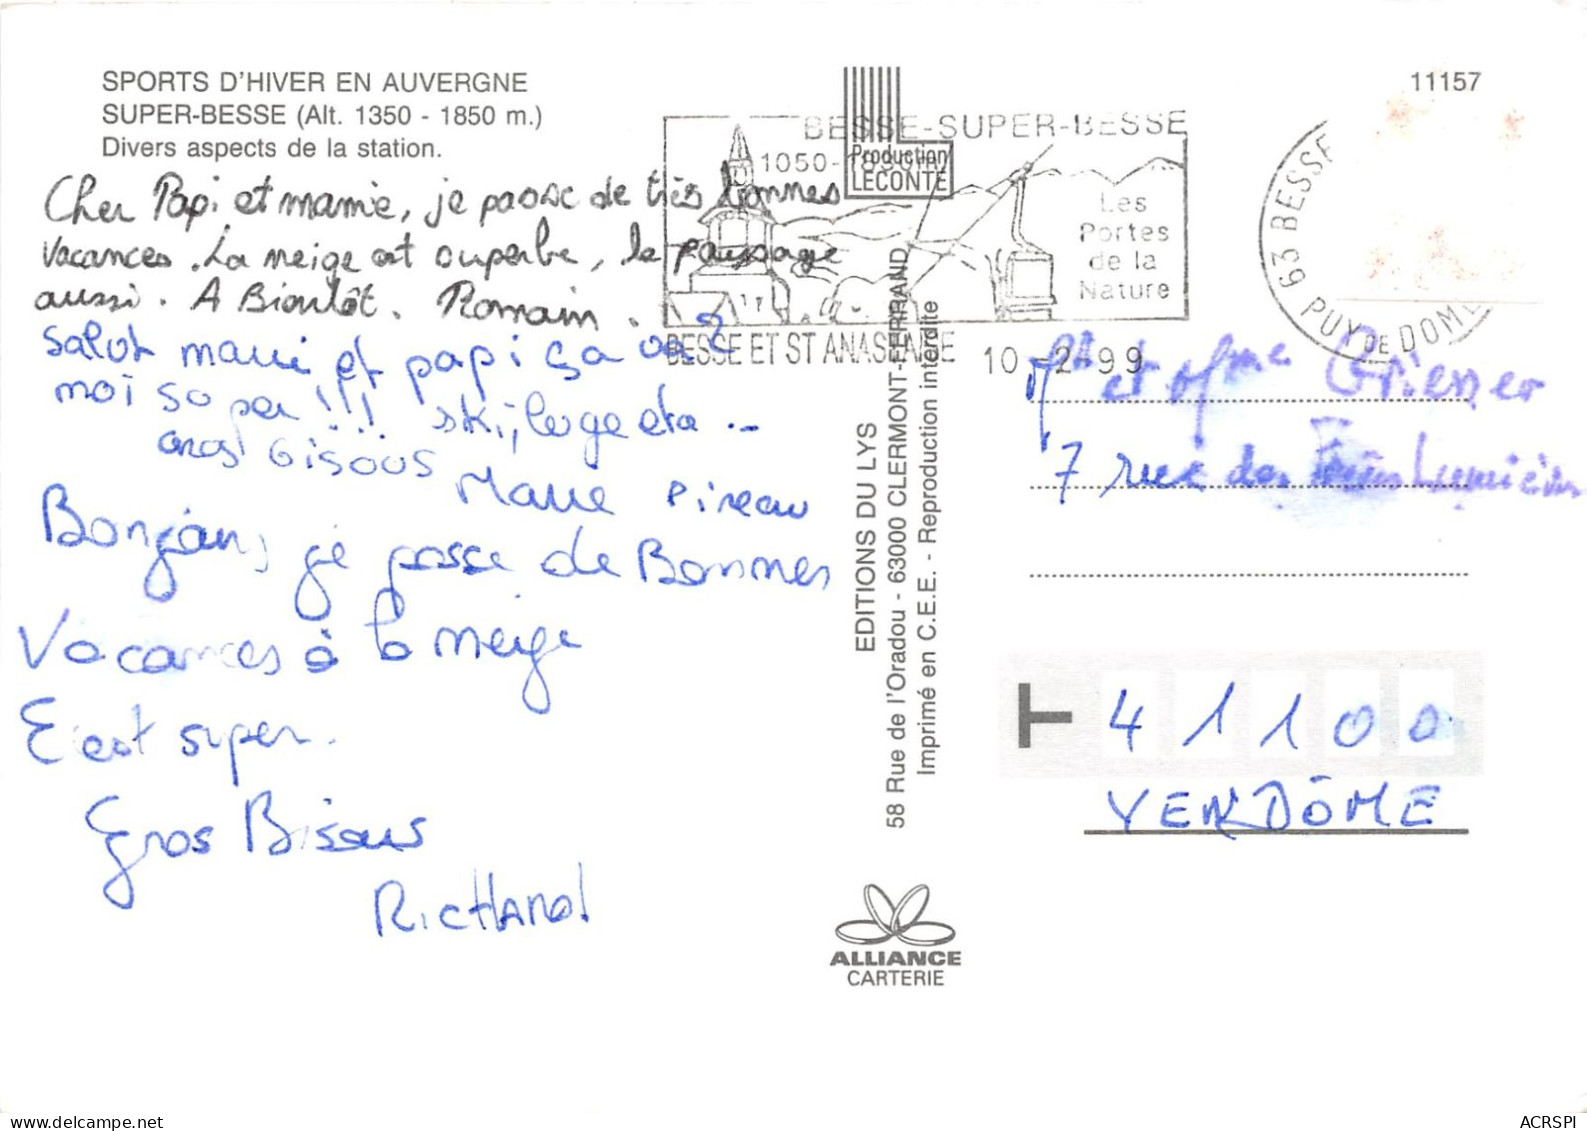 SPORTS D'HIVER EN AUVERGNE
SUPER-BESSE (Alt. 1350 - 1850 m.)
Divers aspects de la station.
Cher Papi et mamie, je passe de très bonnes
vacances. La neige est superbe, le paussage
aussi. A Bientôt. Romain.
Salut mami et papi ça va ?
moi super !!! ski, luge eta ...
gros bisous
Marie Pineau
Bonjour, je passe de Bonnes
Vacances à la neige
C'est super.
Gros Bisous
RicHARd
Production
LECONTE
BESSE-SUPER-BESSE
1050-1850m
Les
Portes
de la
Nature
BESSE ET ST ANASTAISE
10-2-99
63 BESSE
PUY DE DOME
11157
EDITIONS DU LYS
58 Rue de l'Oradou - 63000 CLERMONT-FERRAND
Imprimé en C.E.E. - Reproduction interdite
Mr et Mme
7 rue des Frères Lumière
41100
VENDÔME
ALLIANCE
CARTERIE
ACRSPI